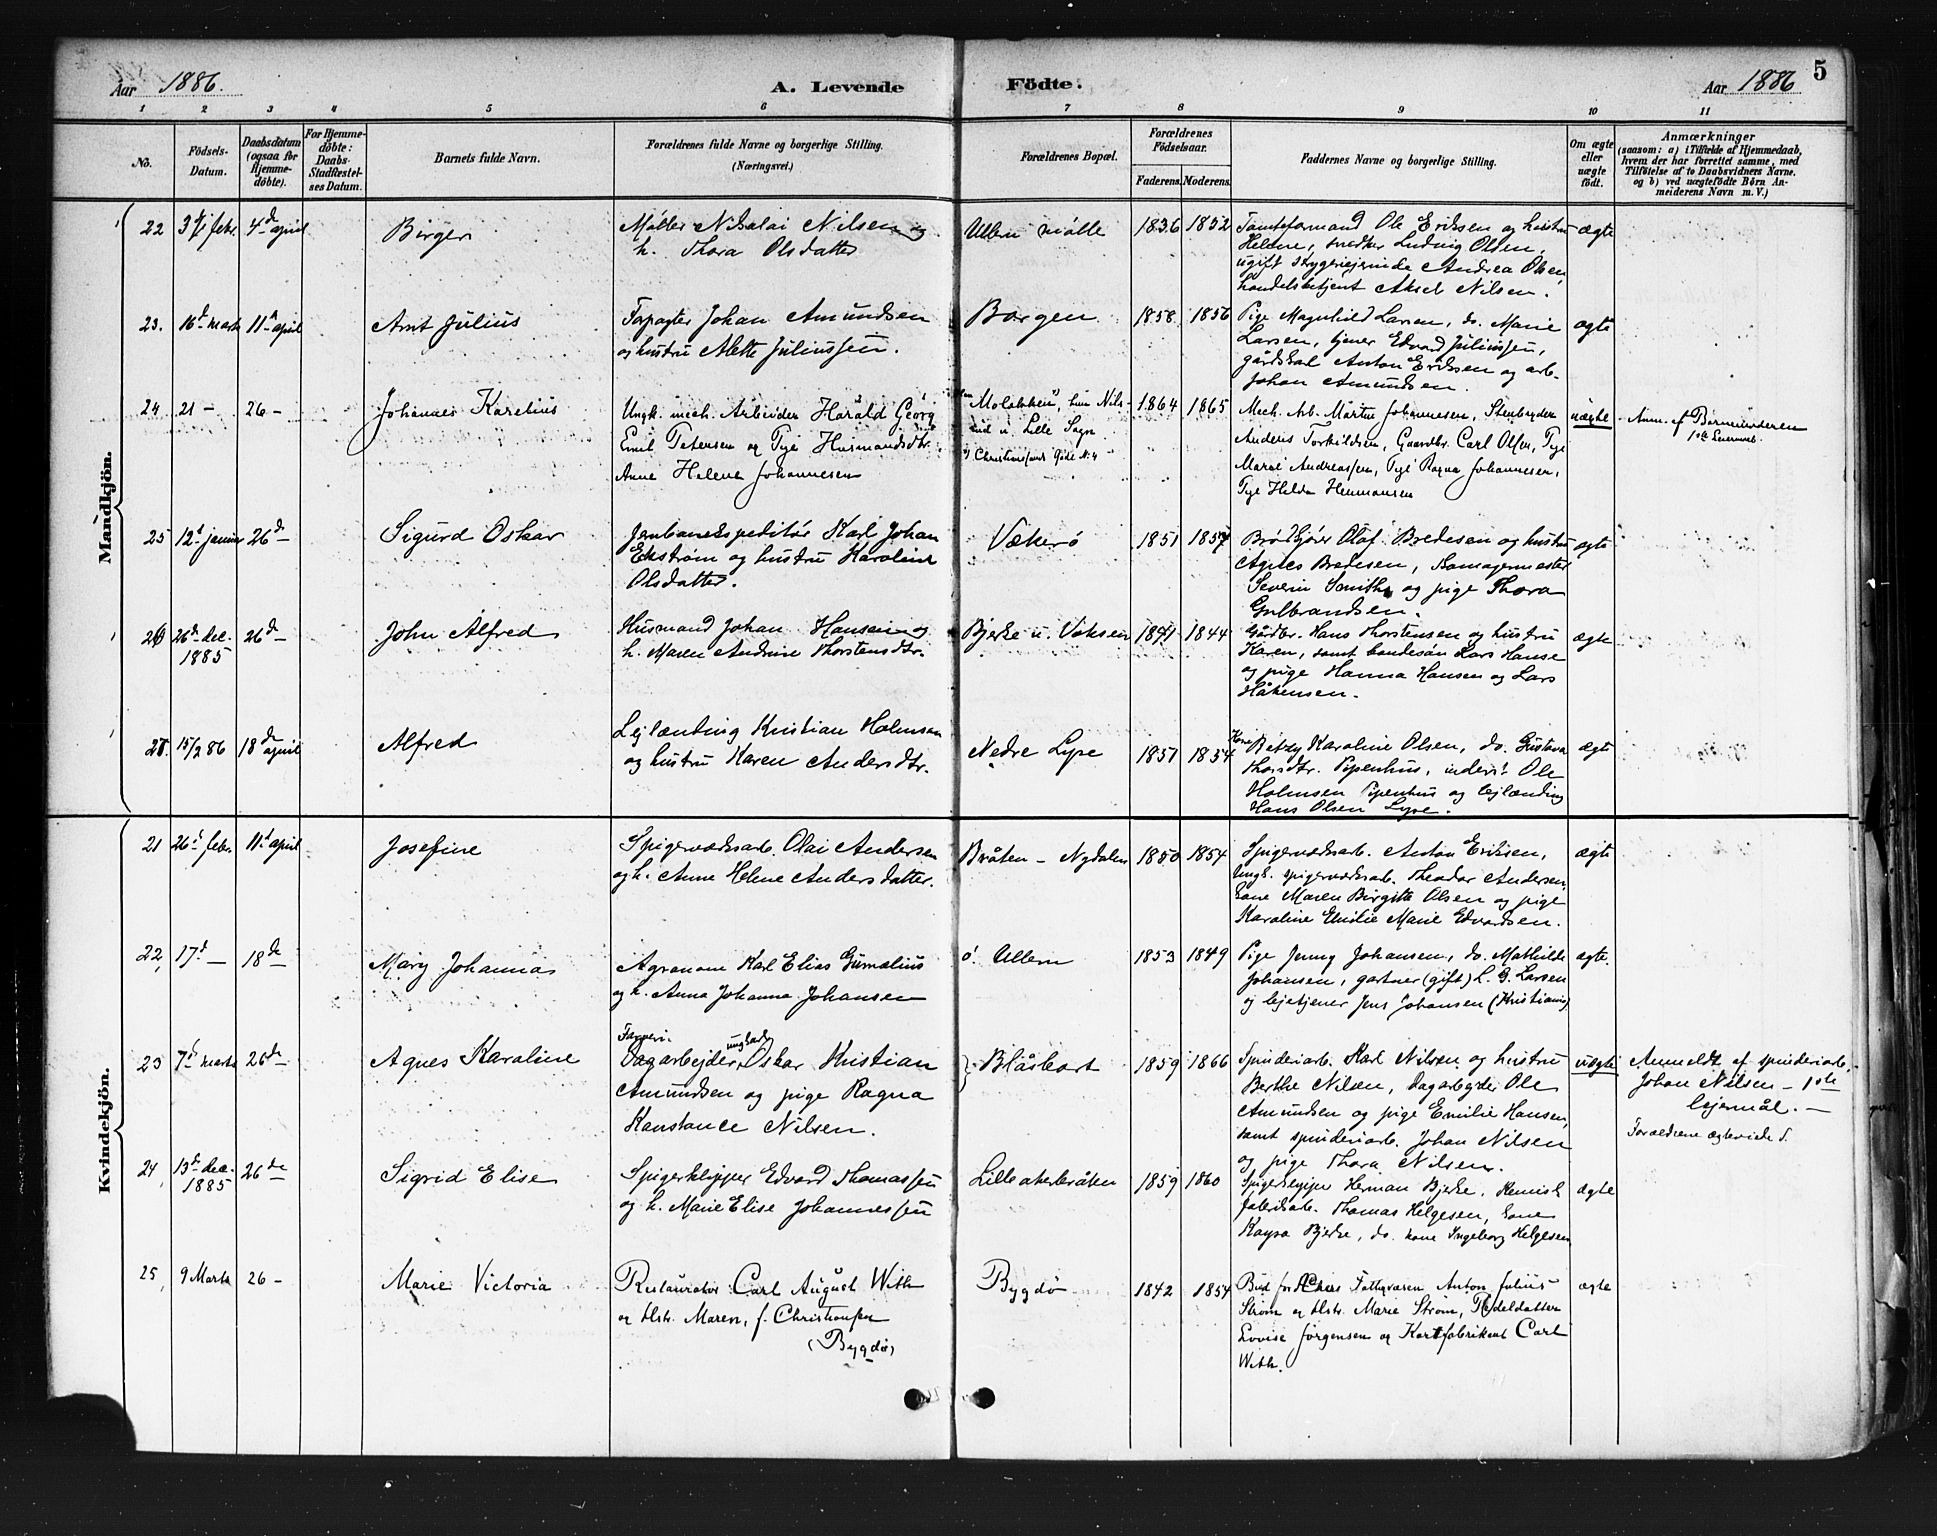 Aar 1886. A. Levende Födte. Aar 1886 5
1 2 3 4 5 6 7 8 9 10 11
No. Födsels-Datum. Daabsdatum (ogsaa for Hjemmedöbte). For Hjemmedöbte: Daabs-Stadfæstelses Datum. Barnets fulde Navn. Forældrenes fulde Navne og borgerlige Stilling. (Næringsvei.) Forældrenes Bopæl. Forældrenes Födselsaar. Faderens. Moderens. Faddernes Navne og borgerlige Stilling. Om ægte eller uægte födt. Anmærkninger (saasom: a) i Tilfælde af Hjemmedaab, hvem der har forrettet samme, med Tilföielse af to Daabsvidners Navne, og b) ved uægtefödte Börn Anmelderens Navn m. V.)
Mandkjön.
22 3d febr. 4de april Birger Møller Nikolai Nilsen og Ullern mølle 1836 1852 Tomteformand Ole Eriksen og hustru ægte
h. Thora Olsdatter Helene, snedker Ludvig Olsen,
ugift strygerierinde Andrea Olsen
handelsbetjent Aksel Nilsen.
23. 16d marts 11te april Arnt Julius Forpagter Johan Amundsen Borgen 1858 1856 Pige Magnhild Larsen, do. Marie ægte
og hustru Alette Juliussen. Larsen, tjener Edvard Juliussen,
gårdskarl Anton Eriksen og arb.
Johan Amundsen.
24 21 - 26 - Johannes Karelius Ungk. mech. Arbeider Harald Georg Molokken, hun Nils- 1864 1865 Mech. Arb. Martin Johannesen, Stenbryder uægte Anm. af Barnemoderen
Emil Petersen og Pige Husmandsdtr. rud u. Lille Sogn Anders Torkildsen, Gaardbr. Carl Olsen, Pige 1ste Leiermaal
Anne Helene Johannesen Christiansands Gade N. 4 Marie Andreassen, Pige Ragna Johannesen,
Pige Hilda Hermansen
25 12d januar 26de Sigurd Oskar Jernbaneekspeditør Karl Johan Vækerø 1851 1857 Brødkjører Olaf Bredesen og hustru ægte
Ekstrøm og hustru Karoline Agnes Bredesen, Bomagermester
Olsdatter. Severin Smith og pige Thora
Gulbrandsen.
26 26d dec. 26de John Alfred Husmand Johan Hansen og Bjerke u. Voksen 1841 1844 Gårdbr. Hans Thorstensen og hustru ægte
1885 h. Maren Andrine Thorstensdtr. Karen, samt bondesøn Lars Hanse
og pige Hanna Hansen og Lars
Håkensen.
27. 15/2 86 18de april Alfred Lejlænding Kristian Holmsen Nedre Lyse 1851 1854 Kone Betzy Karoline Olsen, do. Gustava ægte
og hustru Karen Andersdtr. Thorsdtr. Pipenhus, inderst Ole
Holmsen Pipenhus og lejlænding
Hans Olsen Lyse.
Kvindekjön.
21 26d febr. 11te april Josefine Spigerverksarb. Olai Andersen Bråten - Nydalen 1850 1854 Spigerverksarb. Anton Eriksen, ægte
og h. Anne Helene Andersdatter. ungk. spigerverksarb. Theodor Andersen,
kone Maren Birgitte Olsen og pige
Karoline Emilie Marie Edvardsen.
22, 17d - 18de Mary Johanna Agronom Karl Elias Gumælius ø. Ullern 1853 1849 Pige Jenny Johansen, do. Mathilde ægte.
og h. Anna Johanna Johansen Johansen, gartner (gift) L. G. Larsen
og lejetjener Jens Johansen (Kristiania)
23 7d marts 26de Agnes Karoline Farveri- Dagarbejder, ungkarl Oskar Kristian Blåsbort 1859 1866 Spinderiarb. Karl Nilsen og hustru uægte Anmeldt af spinderiarb.
Amundsen og pige Ragna Berthe Nilsen, dagarbejder Ole Johan Nilsen - 1ste
Konstance Nilsen. Amundsen og pige Emilie Hansen, lejermål. -
samt spinderiarb. Johan Nilsen Forældrene ægteviede
og pige Thora Nilsen.
24, 13de dec. 26de Sigrid Elise Spigerklipper Edvard Thomassen Lilleakerbråten 1859 1860 Spigerklipper Herman Bjerke, Kemisk ægte
1885 og h. Marie Elise Johannessen fabriksarb. Thomas Helgesen, kone
Kaysa Bjerke, do. kone Ingeborg Helgesen
25, 9 Marts 26 - Marie Victoria Restauratør Carl August With Bygdø 1842 1854 Bud for Akers Fattigvæsen Anton Julius ægte
og Hstr. Maren, f. Christiansen Strøm og Hstr. Marie Strøm,
(Bygdø) Lovise Jørgensen og Kortfabrikant Carl
With.